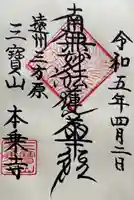 令和五年四月二日
南無妙法蓮華経
遠州三方原
三寶山 本乗寺